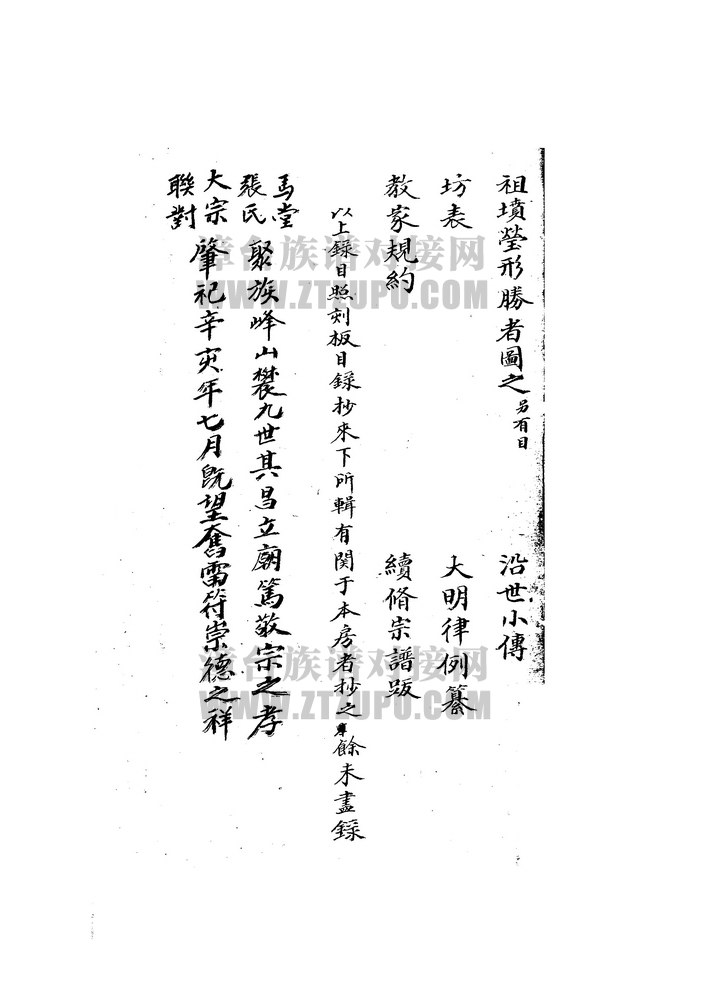 祖墳瑩形勝者圖之 另有目 沿世小傳
坊表 大明律例纂
教家規約 續脩宗譜跋
以上錄目照刻板目錄抄來下所輯有関于本房者抄之餘未盡錄
馬堂
張氏 聚族峰山襲九世其昌立廟篤敬宗之孝
大宗
聯對 肇祀辛亥年七月既望奮雷符崇德之祥
漳台族谱对接网
WWW.ZTZUPU.COM
漳台族谱对接网
WWW.ZTZUPU.COM